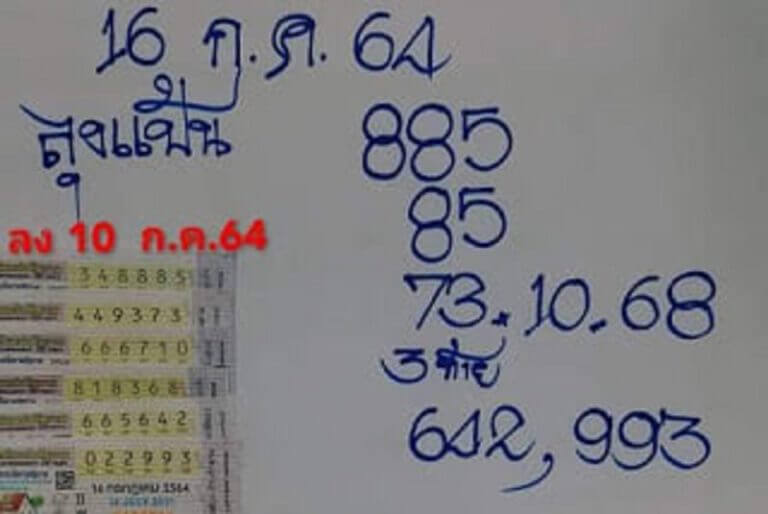 16 ก.ค. 64
ลุงแป๊น
885
85
ลง 10 ก.ค.64
73.10.68
3 ท้าย
642, 993
348885
449373
666710
818368
665642
022993
16 กรกฎาคม 2564